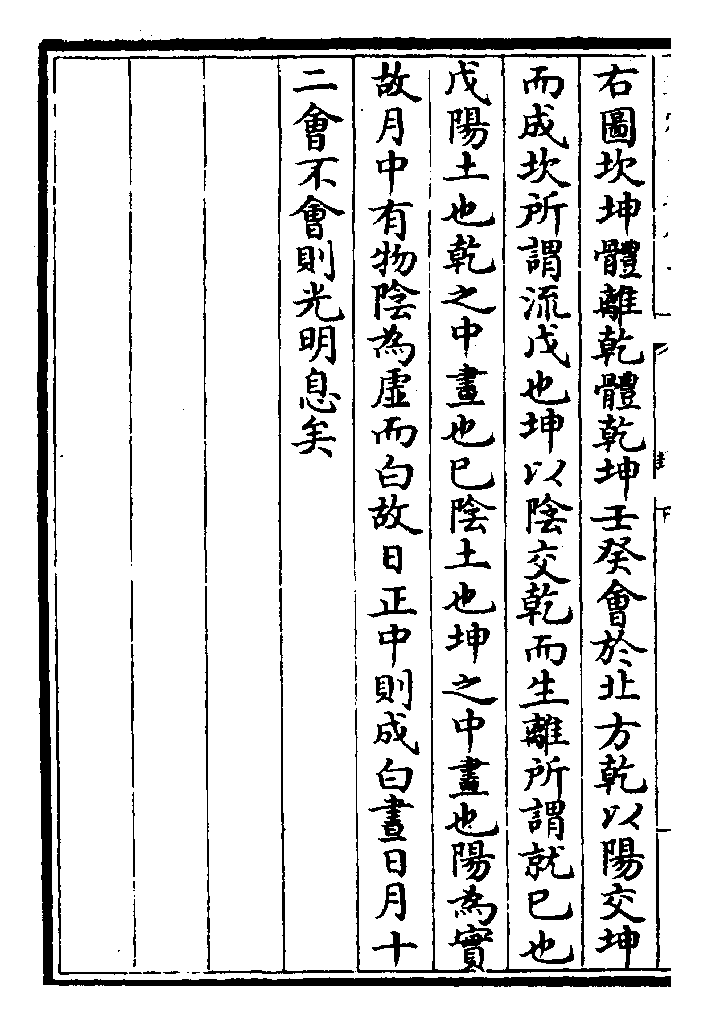 右圖坎坤體離乾體乾坤壬癸會於北方乾以陽交坤
而成坎所謂流戊也坤以陰交乾而生離所謂就己也
戊陽土也乾之中畫也己陰土也坤之中畫也陽為實
故月中有物陰為虛而白故日正中則成白晝日月十
二會不會則光明息矣